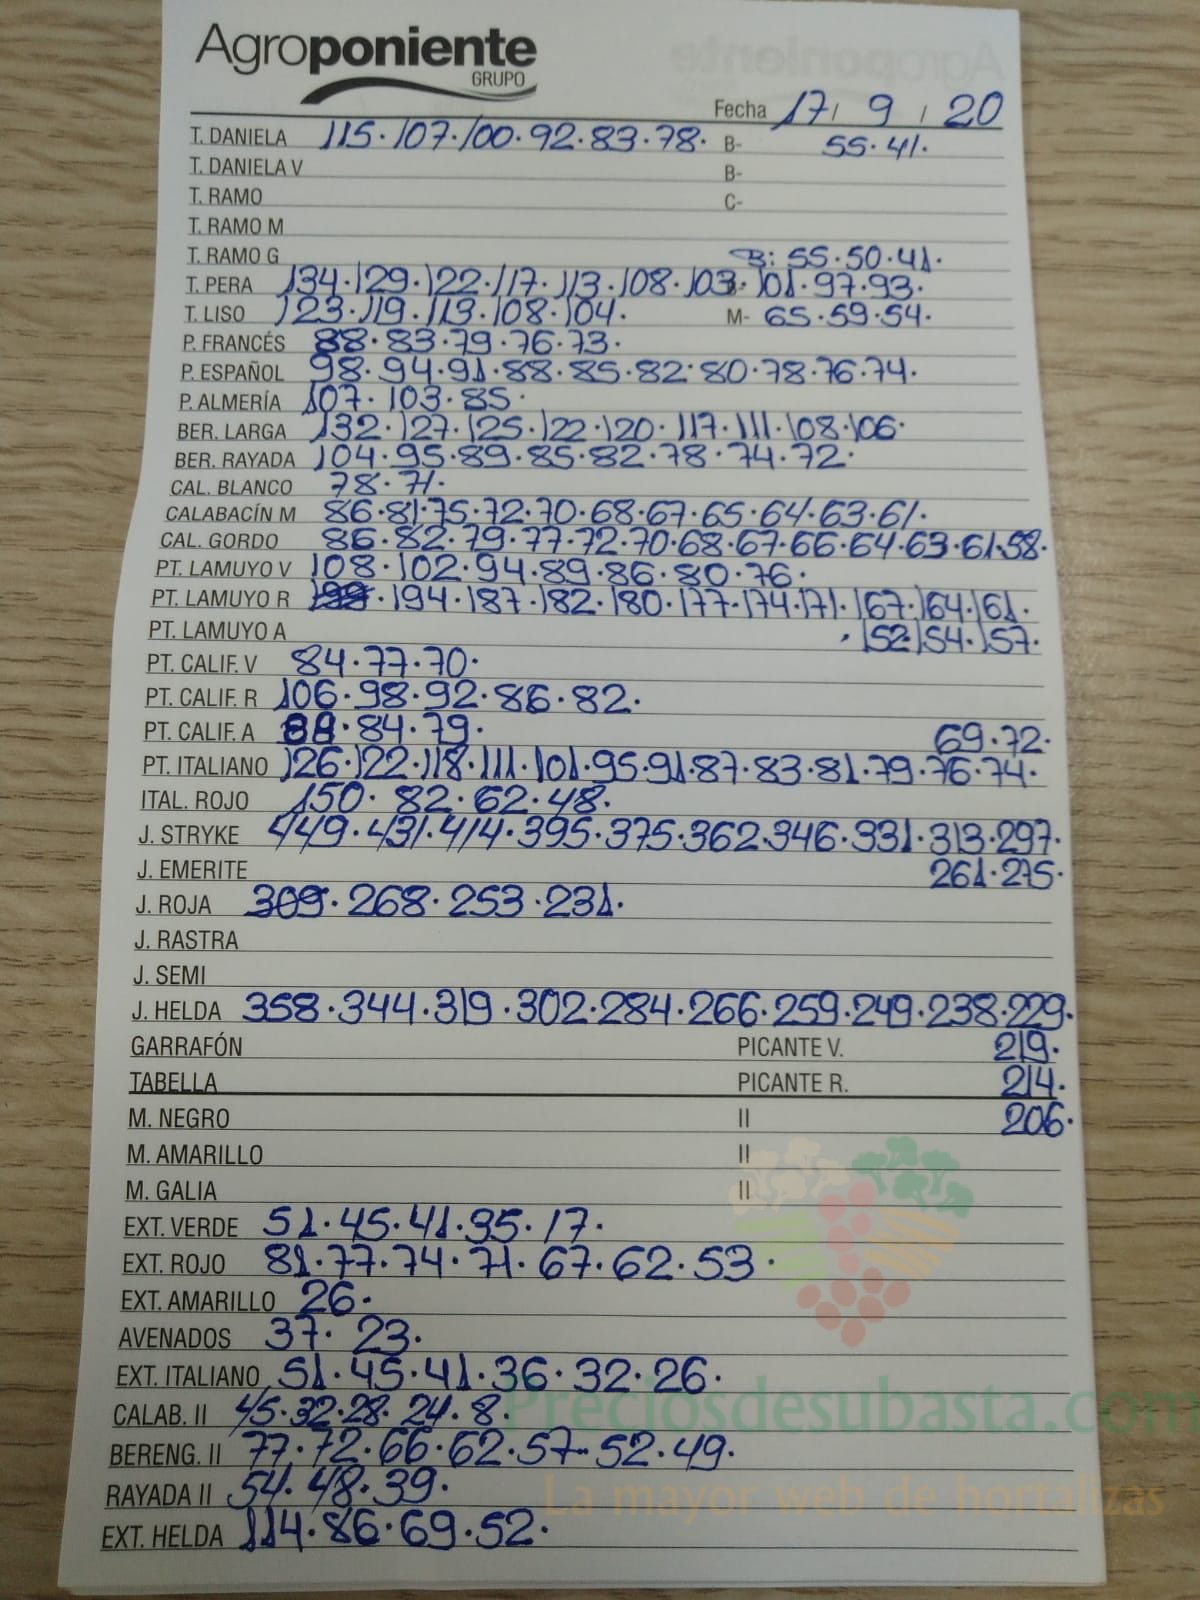 Agroponiente
GRUPO
Fecha 17/ 9 / 20
T. DANIELA 115·107·100·92·83·78· B- 55·41·
T. DANIELA V B-
T. RAMO C-
T. RAMO M
T. RAMO G B: 55·50·41·
T. PERA 134·129·122·117·113·108·103· 101·97·93·
T. LISO 123·119·113·108·104· M- 65·59·54·
P. FRANCÉS 88·83·79·76·73·
P. ESPAÑOL 98·94·91·88·85·82·80·78·76·74·
P. ALMERÍA 107·103·85·
BER. LARGA 132·127·125·122·120·117·111·108·106·
BER. RAYADA 104·95·89·85·82·78·74·72·
CAL. BLANCO 78·71·
CALABACÍN M 86·81·75·72·70·68·67·65·64·63·61·
CAL. GORDO 86·82·79·77·72·70·68·67·66·64·63·61·58·
PT. LAMUYO V 108·102·94·89·86·80·76·
PT. LAMUYO R 199·194·187·182·180·177·174·171·167·164·161·
PT. LAMUYO A ·152·154·157·
PT. CALIF. V 84·77·70·
PT. CALIF. R 106·98·92·86·82·
PT. CALIF. A ·84·79· 69·72·
PT. ITALIANO 126·122·118·111·101·95·91·87·83·81·79·76·74·
ITAL. ROJO 150·82·62·48·
J. STRYKE 449·431·414·395·375·362·346·331·313·297·
J. EMERITE 261·275·
J. ROJA 309·268·253·231·
J. RASTRA
J. SEMI
J. HELDA 358·344·319·302·284·266·259·249·238·229·
GARRAFÓN PICANTE V. 219·
TABELLA PICANTE R. 214·
M. NEGRO II 206·
M. AMARILLO II
M. GALIA II
EXT. VERDE 51·45·41·35·17·
EXT. ROJO 81·77·74·71·67·62·53·
EXT. AMARILLO 26·
AVENADOS 37·23·
EXT. ITALIANO 51·45·41·36·32·26·
Preciosdesubasta.com
CALAB. II 45·32·28·24·8·
BERENG. II 77·72·66·62·57·52·49·
RAYADA II 54·48·39·
La mayor web de hortalizas
EXT. HELDA 114·86·69·52·